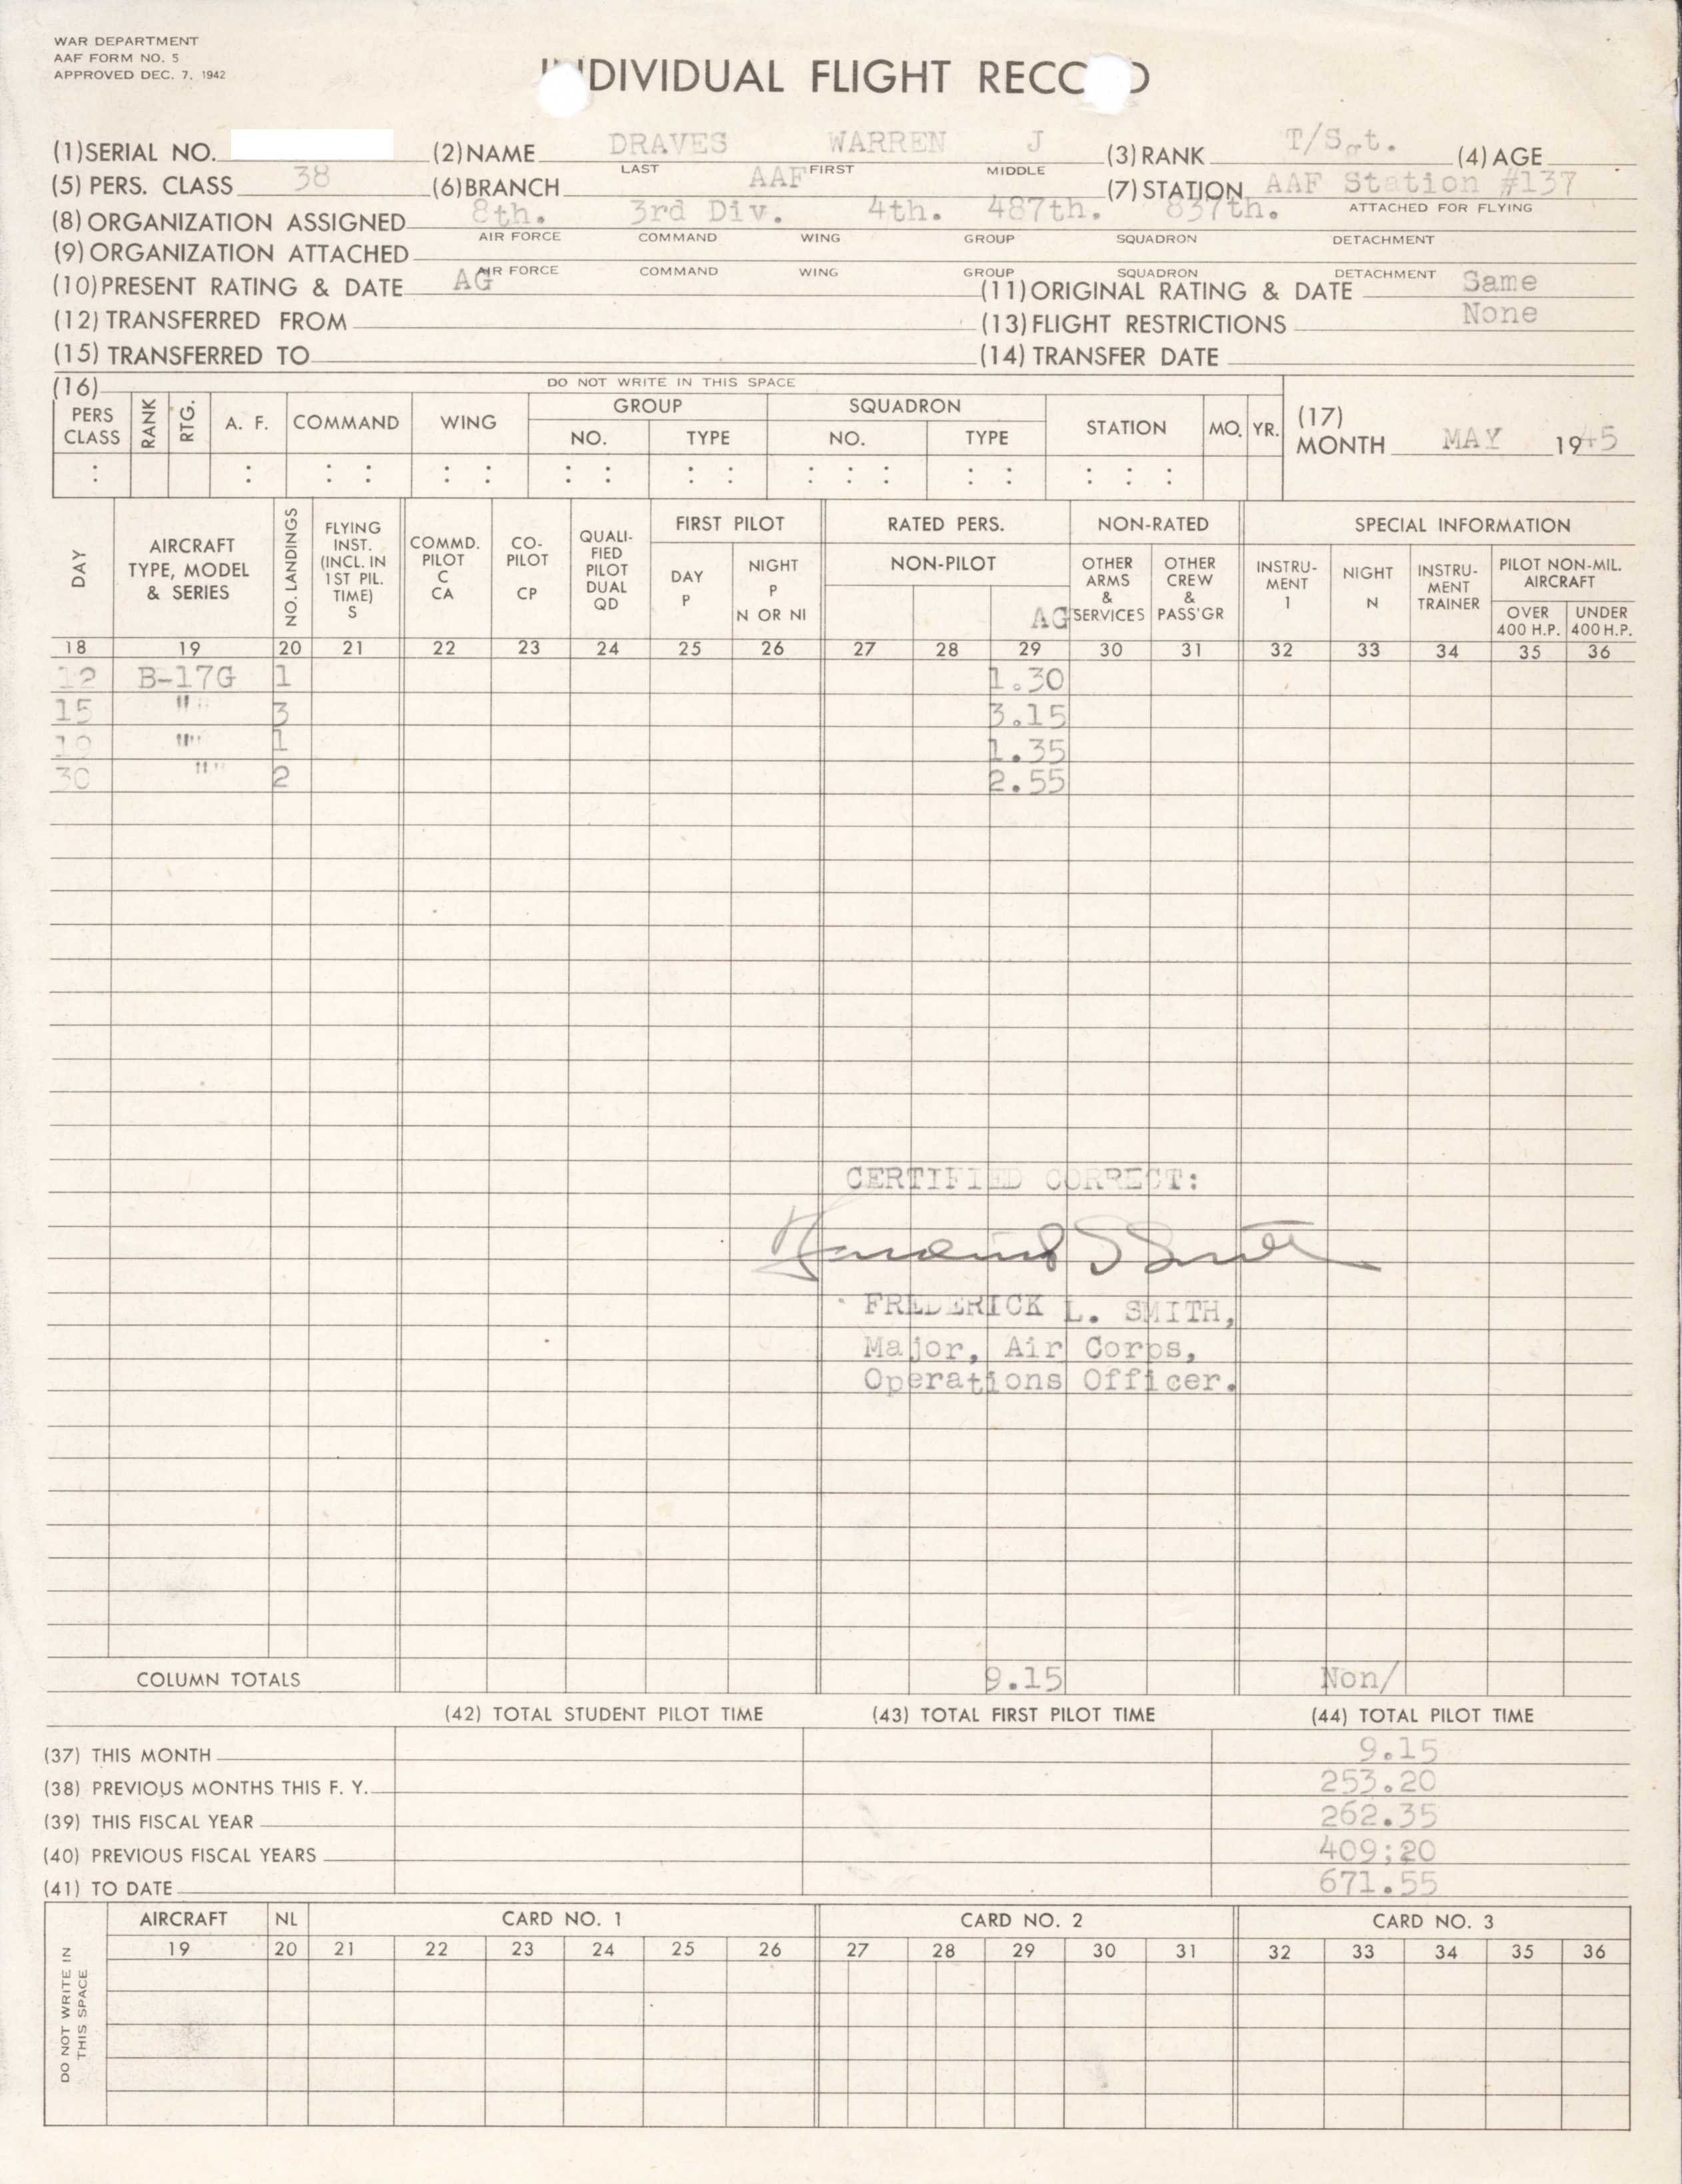 WAR DEPARTMENT
AAF FORM NO. 5
APPROVED DEC. 7, 1942
INDIVIDUAL FLIGHT RECORD
(1) SERIAL NO. (2) NAME DRAVES WARREN J (3) RANK T/Sgt. (4) AGE
LAST FIRST MIDDLE
(5) PERS. CLASS 38 (6) BRANCH AAF (7) STATION AAF Station #137
ATTACHED FOR FLYING
(8) ORGANIZATION ASSIGNED 8th. 3rd Div. 4th. 487th. 837th.
AIR FORCE COMMAND WING GROUP SQUADRON DETACHMENT
(9) ORGANIZATION ATTACHED
AIR FORCE COMMAND WING GROUP SQUADRON DETACHMENT
(10) PRESENT RATING & DATE AG (11) ORIGINAL RATING & DATE Same
(12) TRANSFERRED FROM (13) FLIGHT RESTRICTIONS None
(15) TRANSFERRED TO (14) TRANSFER DATE
(16) DO NOT WRITE IN THIS SPACE
PERS CLASS RANK RTG. A. F. COMMAND WING GROUP NO. TYPE SQUADRON NO. TYPE STATION MO. YR.
(17) MONTH MAY 1945
DAY AIRCRAFT TYPE, MODEL & SERIES NO. LANDINGS FLYING INST. (INCL. IN 1ST PIL. TIME) S COMMD. PILOT C CA CO-PILOT CP QUALI-FIED PILOT DUAL QD FIRST PILOT DAY P NIGHT P N OR NI RATED PERS. NON-PILOT AG NON-RATED OTHER ARMS & SERVICES OTHER CREW & PASS'GR SPECIAL INFORMATION INSTRU-MENT 1 NIGHT N INSTRU-MENT TRAINER PILOT NON-MIL. AIRCRAFT OVER 400 H.P. UNDER 400 H.P.
18 19 20 21 22 23 24 25 26 27 28 29 30 31 32 33 34 35 36
12 B-17G 1 1.30
15 "" 3 3.15
19 "" 1 1.35
30 "" 2 2.55
CERTIFIED CORRECT:
FREDERICK L. SMITH,
Major, Air Corps,
Operations Officer.
COLUMN TOTALS 9.15 Non/
(42) TOTAL STUDENT PILOT TIME (43) TOTAL FIRST PILOT TIME (44) TOTAL PILOT TIME
(37) THIS MONTH 9.15
(38) PREVIOUS MONTHS THIS F. Y. 253.20
(39) THIS FISCAL YEAR 262.35
(40) PREVIOUS FISCAL YEARS 409;20
(41) TO DATE 671.55
DO NOT WRITE IN THIS SPACE
AIRCRAFT NL CARD NO. 1 CARD NO. 2 CARD NO. 3
19 20 21 22 23 24 25 26 27 28 29 30 31 32 33 34 35 36